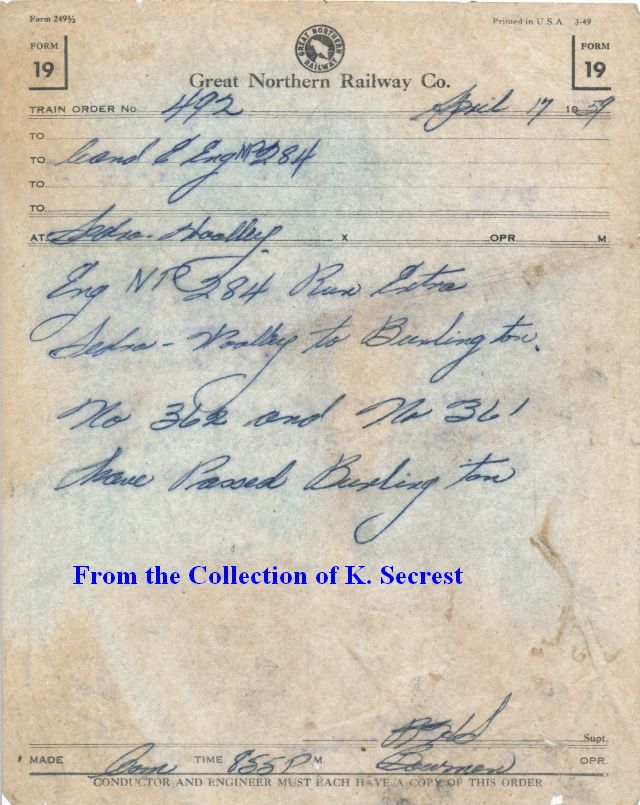 Form 249½
Printed in U.S.A. 3-49
FORM
19
GREAT NORTHERN RAILWAY
FORM
19
Great Northern Railway Co.
TRAIN ORDER No. 492 April 17 1959
TO
TO C and E Eng NP 284
TO
TO
AT Sedro-Woolley X OPR. M
Eng NP 284 Run Extra
Sedro-Woolley to Burlington.
No 362 and No 361
have Passed Burlington
From the Collection of K. Secrest
Supt.
MADE Com TIME 855 P M. Bowmen OPR
CONDUCTOR AND ENGINEER MUST EACH HAVE A COPY OF THIS ORDER